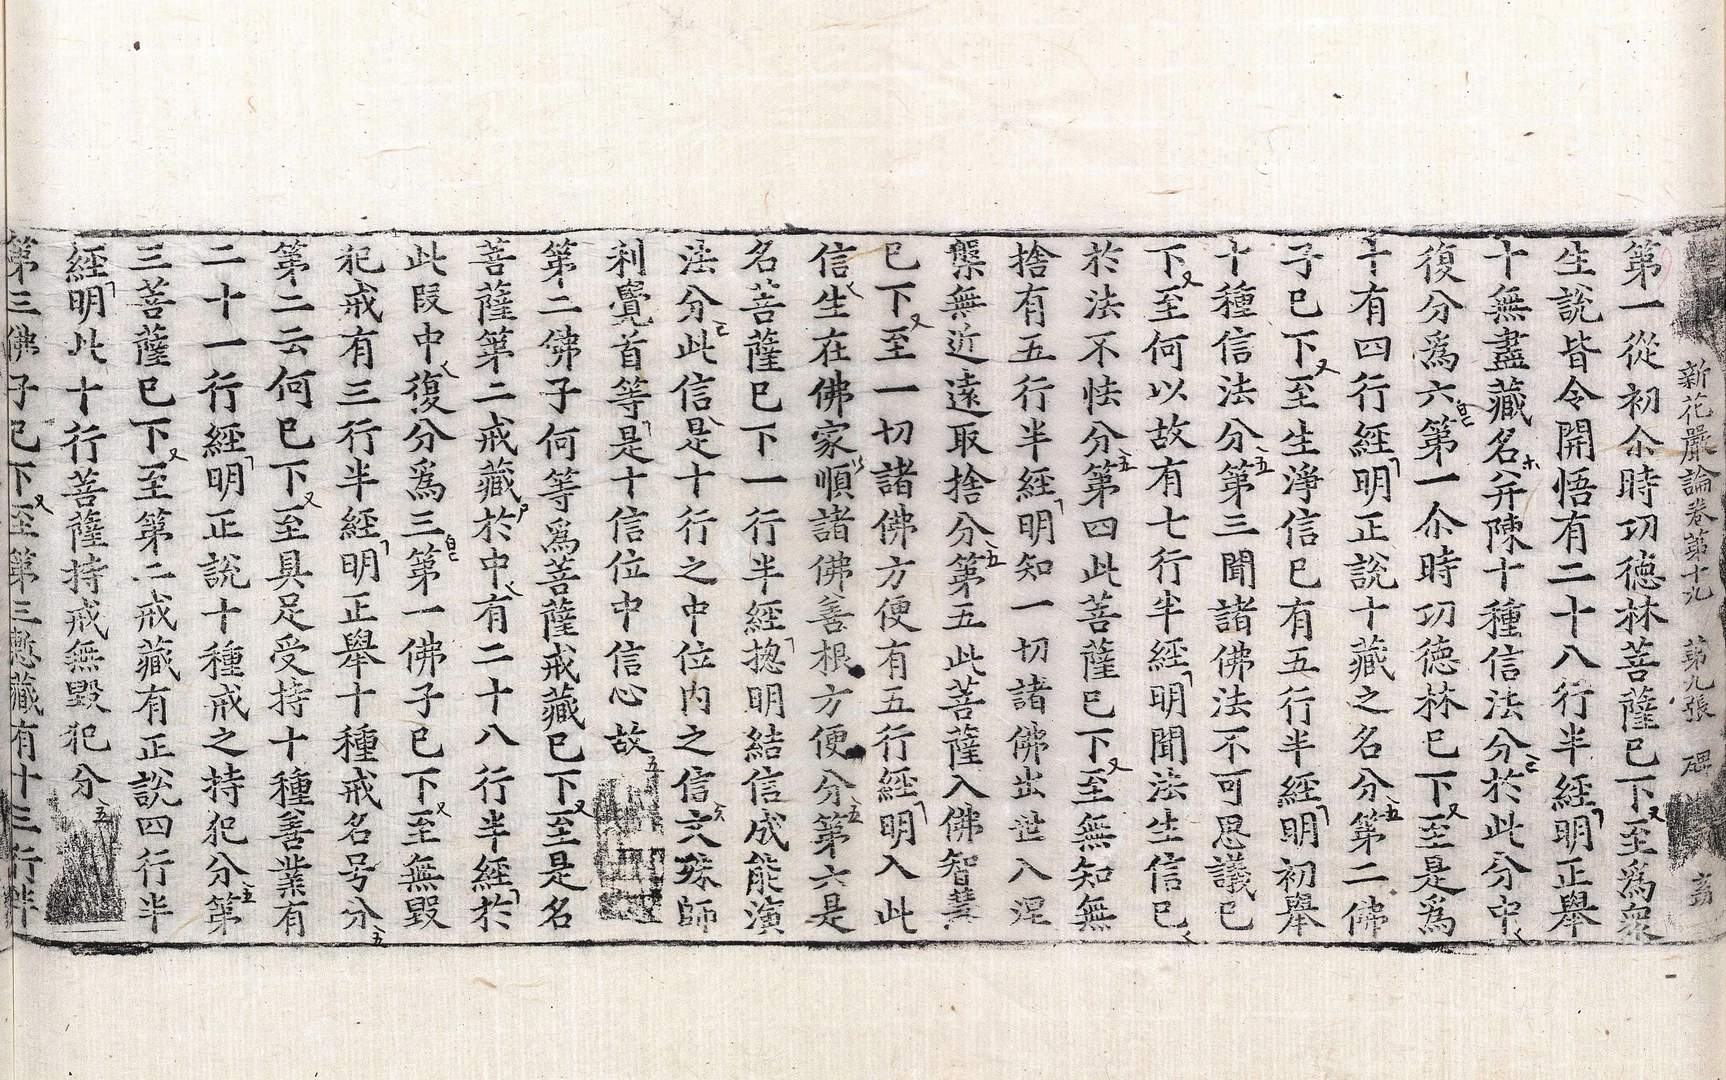 新花嚴論卷第十九　第九張　碑
第一從初尒時功德林菩薩巳下至爲衆
生說皆令開悟有二十八行半經明正舉
十無盡藏名并陳十種信法分於此分中
復分爲六第一尒時功德林巳下至是爲
十有四行經明正說十藏之名分第二佛
子巳下至生淨信巳有五行半經明初舉
十種信法分第三聞諸佛法不可思議巳
下至何以故有七行半經明聞法生信巳
於法不怯分第四此菩薩巳下至無知無
捨有五行半經明知一切諸佛出世入涅
槃無近遠取捨分第五此菩薩入佛智慧
巳下至一切諸佛方便有五行經明入此
信生在佛家順諸佛善根方便分第六是
名菩薩巳下一行半經揔明結信成能演
法分此信是十行之中位內之信文殊師
利覺首等是十信位中信心故
第二佛子何等爲菩薩戒藏巳下至是名
菩薩第二戒藏於中有二十八行半經於
此叚中復分爲三第一佛子巳下至無毀
犯戒有三行半經明正舉十種戒名号分
第二云何巳下至具足受持十種善業有
二十一行經明正說十種戒之持犯分第
三菩薩巳下至第二戒藏有正說四行半
經明此十行菩薩持戒無毀犯分
第三佛子巳下至第三慙藏有十三行半